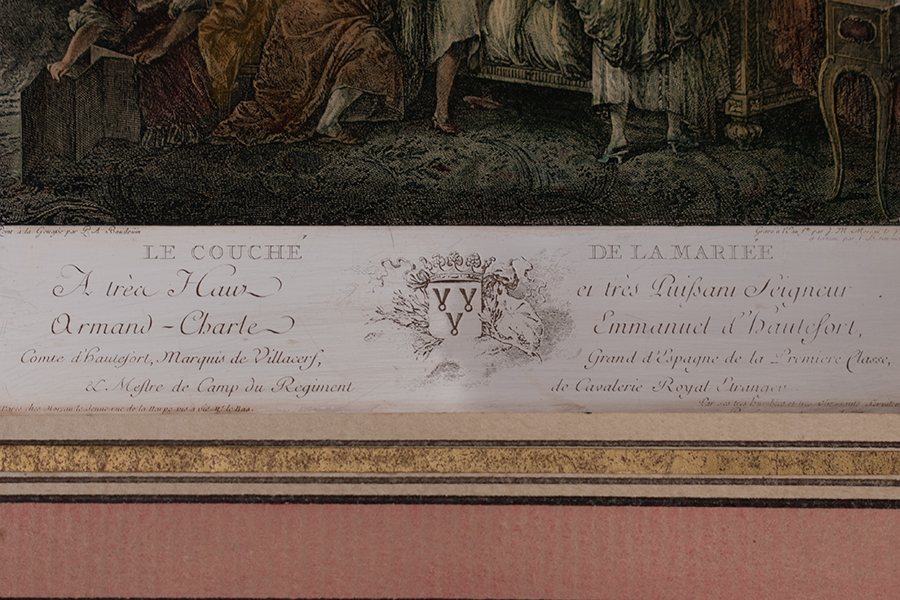 à la Gouache par P. A. Baudouin
Gravé à l'Eau f.te par J. M. Moreau le
LE COUCHÉ DE LA MARIÉE
A très Haut et très Puissant Seigneur
Armand-Charle Emmanuel d'hautefort,
Comte d'hautefort, Marquis de Villacerf, Grand d'Espagne de la Premiere Classe,
et Mestre de Camp du Regiment de Cavalerie Royal Etranger
Paris chez Moreau le Jeune rue de la Harpe vis a vis Mr. le Bas
Par ses très humbles et très